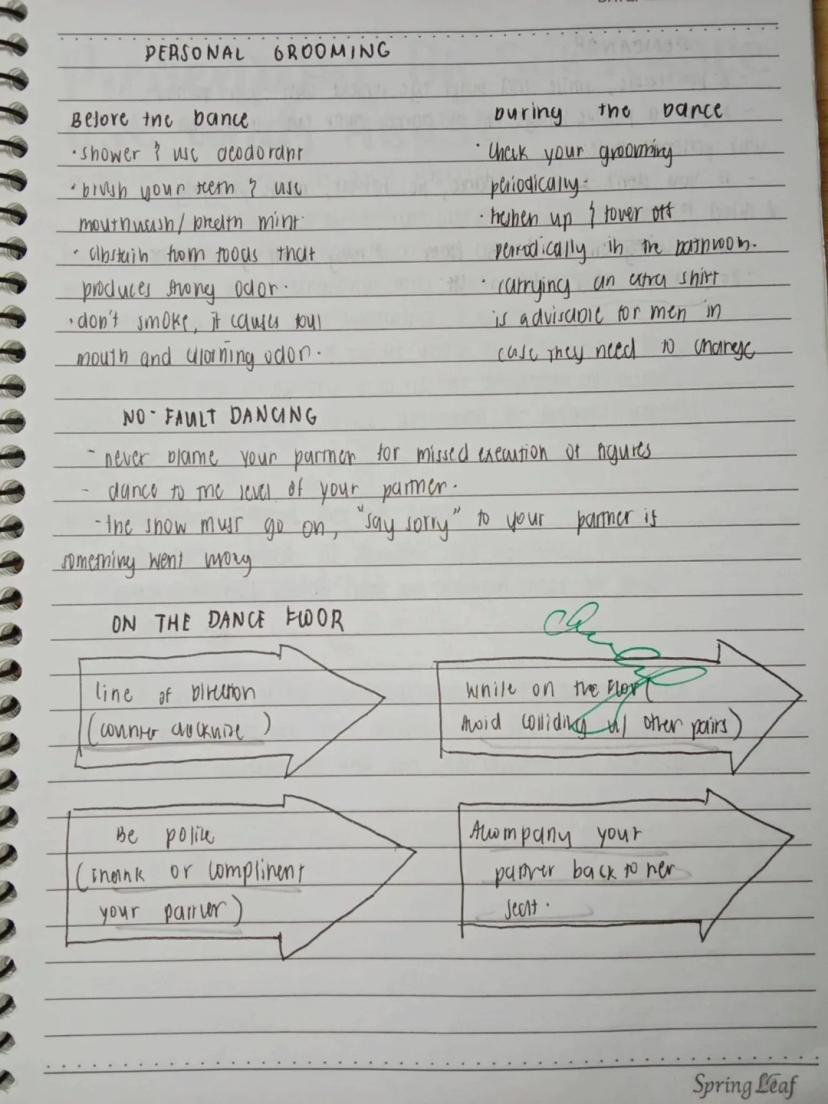 PERSONAL GROOMING
Before the Dance
• shower & use deodorant
• brush your teeth & use
mouthwash/ breath mint.
• Abstain from foods that
produces strong odor.
• don't smoke, it causes foul
mouth and clothing odor.
During the Dance
• Check your grooming
periodically.
• freshen up & towel off
periodically in the bathroom.
• carrying an extra shirt
is advisable for men in
case they need to change
NO-FAULT DANCING
- never blame your partner for missed execution of figures
- dance to the level of your partner.
- the show must go on, "say sorry" to your partner is
something went wrong
ON THE DANCE FLOOR
Line of Direction
(counter clockwise)
While on the Floor
Avoid colliding w/ other pairs)
Be polite
(Thank or compliment
your partner)
Accompany your
partner back to her
seat.
Spring Leaf